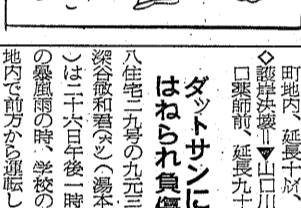 町地内、延長十米、
◇護岸決壊＝▼山口川
口薬師前、延長九十
ダットサンに
はねられ負傷
八住宅二九号の九元三
深谷敏和君(六ツ)(湯本
)は二十六日午後一時
の暴風雨の時、学校の
地内で前方から運転し